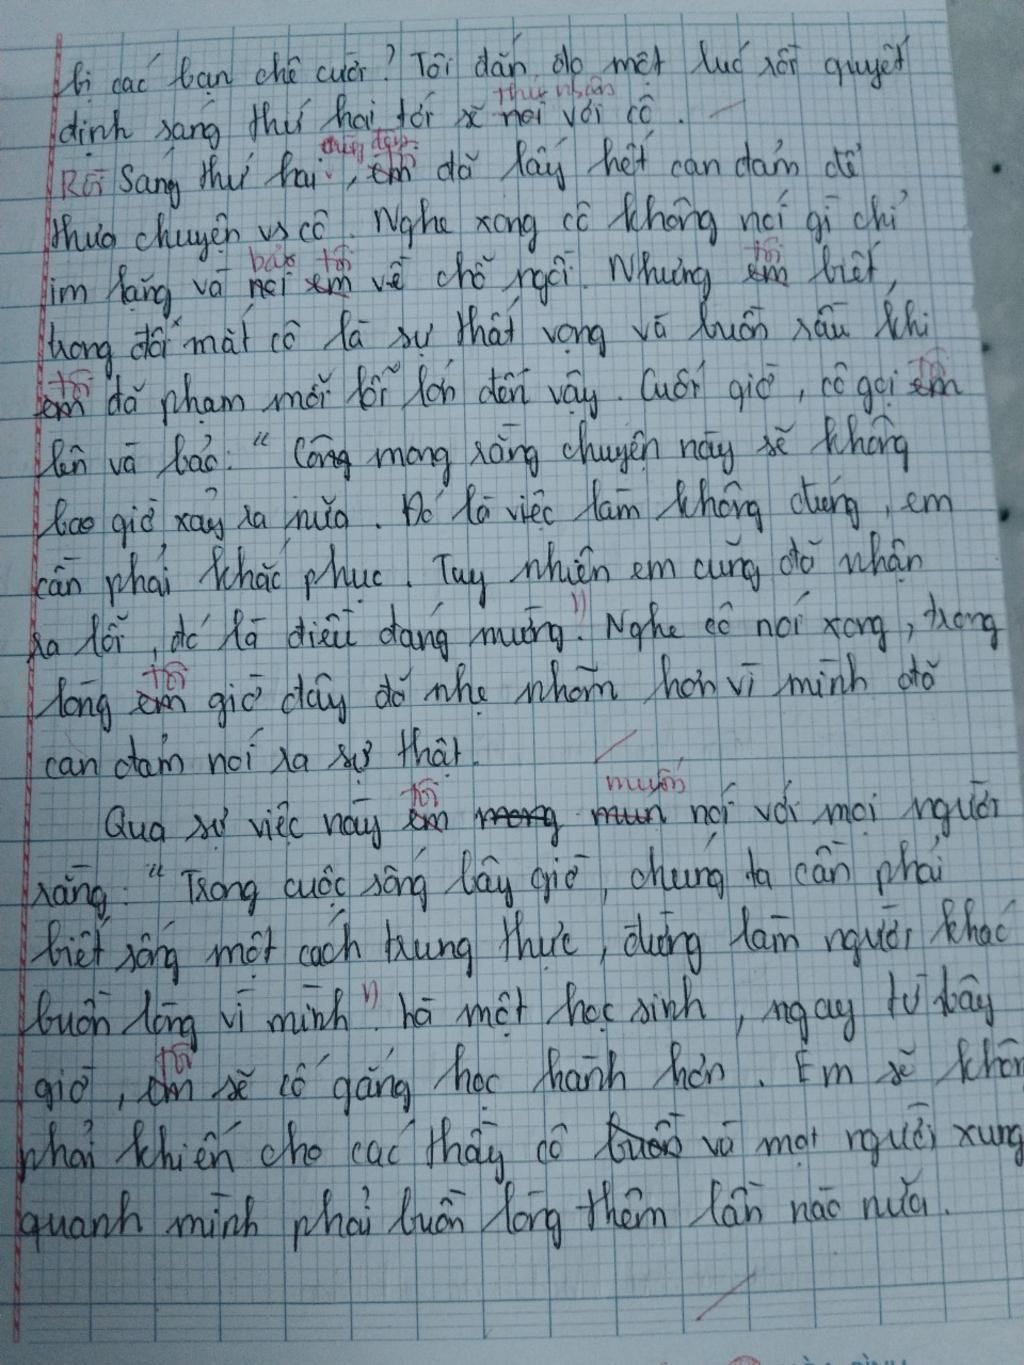 bị các bạn chê cười? Tôi dắn đo một lúc rồi quyết
thú nhận
định sáng thứ hai tới sẽ nói với cô.
Rồi Sáng thứ hai, em đã lấy hết can đảm để
thưa chuyện vs cô. Nghe xong cô không nói gì chỉ
bảo tôi tôi
im lặng và nói em về chỗ ngồi. Nhưng em biết,
trong đôi mắt cô là sự thất vọng và buồn rầu khi
tôi tôi
em đã phạm mỗi lỗi lớn đến vậy. Cuối giờ, cô gọi em
lên và bảo: " Công mong rằng chuyện này sẽ không
bao giờ xảy ra nữa. Đó là việc làm không đúng, em
cần phải khắc phục. Tuy nhiên em cũng đã nhận
ra lỗi, đó là điều đáng mừng." Nghe cô nói xong, trong
tôi
lòng em giờ đây đó nhẹ nhõm hơn vì mình đã
can đảm nói ra sự thật.
tôi muốn
Qua sự việc này em mong mun nói với mọi người
rằng: " Trong cuộc sống bây giờ, chúng ta cần phải
biết sống một cách trung thực, đừng làm người khác
buồn lòng vì mình". Là một học sinh, ngay từ bây
tôi
giờ, em sẽ cố gắng học hành hơn. Em sẽ khôn
phải khiến cho các thầy cô buồn và mọi người xung
quanh mình phải buồn lòng thêm lần nào nữa.